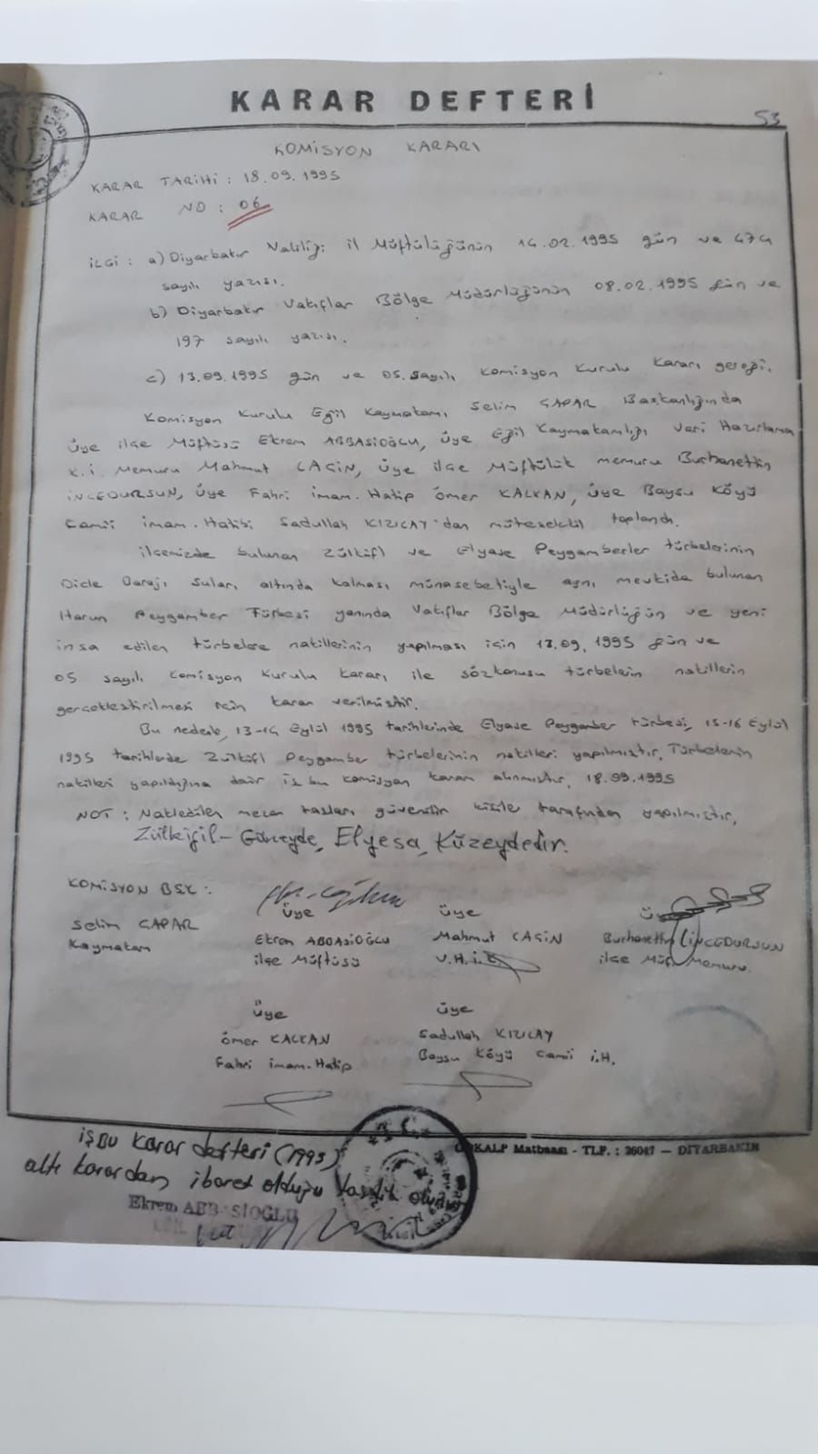 KARAR DEFTERİ
53
KOMİSYON KARARI
KARAR TARİHİ : 18.09.1995
KARAR NO : 06
İLGİ : a) Diyarbakır Valiliği İl Müftülüğünün 14.02.1995 gün ve 474
sayılı yazısı.
b) Diyarbakır Vakıflar Bölge Müdürlüğünün 08.02.1995 gün ve
197 sayılı yazısı.
c) 13.09.1995 gün ve 05.sayılı Komisyon Kurulu Kararı gereği.
Komisyon Kurulu Eğil Kaymakamı Selim ÇAPAR Başkanlığında
Üye ilçe Müftüsü Ekrem ABBASİOĞLU, Üye Eğil Kaymakamlığı Veri Hazırlama
K.İ. Memuru Mahmut ÇAGIN, Üye ilçe Müftülük memuru Burhanettin
İNCEDURSUN, Üye Fahri İmam.Hatip Ömer KALKAN, üye Baysu Köyü
Camii İmam.Hatibi Sadullah KIZILAY'dan müteşekkil toplandı.
İlçemizde bulunan Zülküfl ve Elyase Peygamberler türbelerinin
Dicle Barajı suları altında kalması münasebetiyle aynı mevkide bulunan
Harun Peygamber Türbesi yanında Vakıflar Bölge Müdürlüğün ve yeni
inşa edilen türbelere nakillerinin yapılması için 13.09.1995 gün ve
05 sayılı Komisyon Kurulu kararı ile sözkonusu türbelerin nakillerin
gerçekleştirilmesi için karar verilmiştir.
Bu nedenle, 13-14 Eylül 1995 tarihlerinde Elyase Peygamber türbesi, 15-16 Eylül
1995 tarihlerde Zülküfl Peygamber türbelerinin nakilleri yapılmıştır. Türbelerin
nakilleri yapıldığına dair iş bu komisyon kararı alınmıştır. 18.09.1995
NOT : Nakledilen mezar taşları güvenilir kişiler tarafından yapılmıştır.
Zülkifil - Güneyde, Elyesa, Kuzeydedir.
KOMİSYON BŞK :
Selim ÇAPAR
Kaymakam
Üye
Ekrem ABBASİOĞLU
ilçe Müftüsü
Üye
Mahmut ÇAGIN
V.H.İ.
Burhanettin İNCEDURSUN
ilçe Müf. Memuru
Üye
Ömer KALKAN
Fahri imam.Hatip
Üye
Sadullah KIZILAY
Baysu Köyü Camii İ.H.
KALP Matbaası - TLF. : 26047 — DİYARBAKIR
işbu karar defteri (1995)
altı karardan ibaret olduğu tasdik olunur
Ekrem ABBASİOĞLU